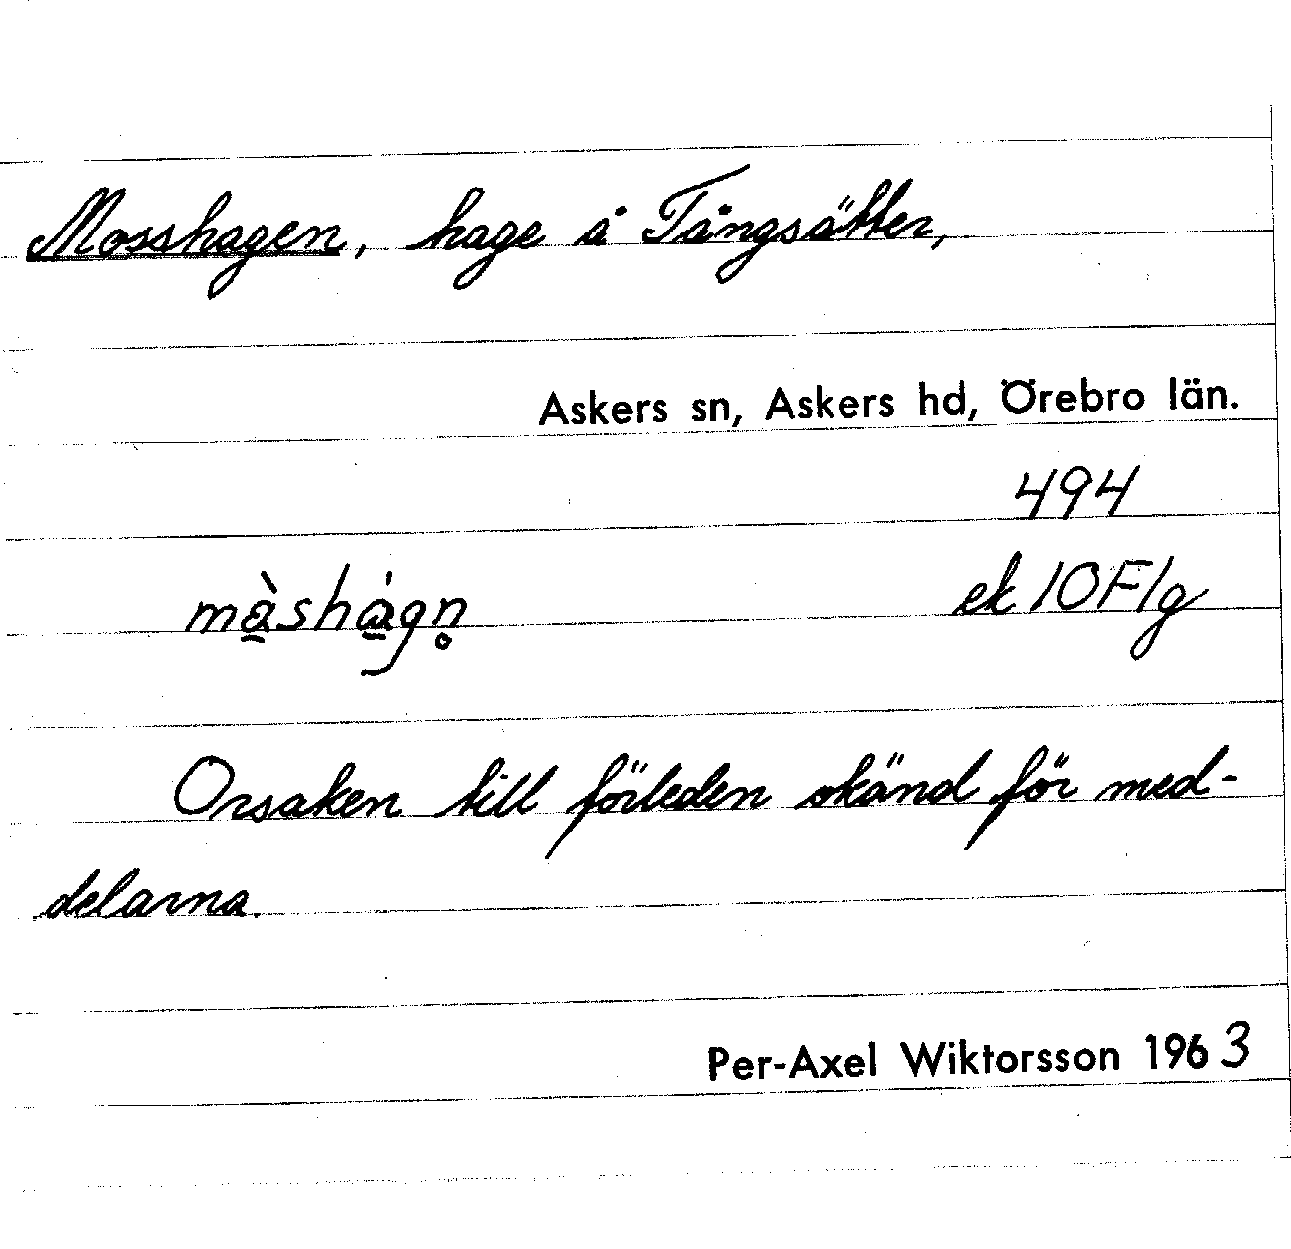 Mosshagen, hage å Tångsätter,
Askers sn, Askers hd, Örebro län.
494
mà̱shá̱gn̥ ek 10F1g
Orsaken till förleden okänd för med-
delarna.
Per-Axel Wiktorsson 1963